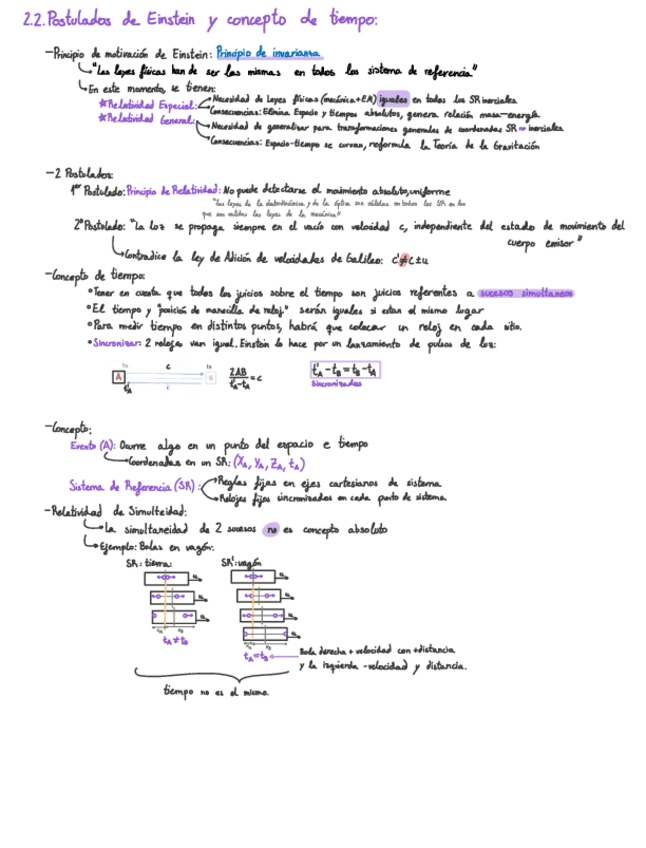 2.2. Postulados de Einstein y concepto de tiempo:
-Principio de motivación de Einstein: Principio de invarianza
"Las leyes físicas han de ser las mismas en todos los sistema de referencia"
En este momento, se tienen:
*Relatividad Especial:
Necesidad de Leyes físicas (mecánica+EM) iguales en todos los SR inerciales
Consecuencias: Elimina Espacio y tiempos absolutos, genera relación masa-energía
*Relatividad General:
Necesidad de generalizar para transformaciones generales de coordenadas SR no inerciales
Consecuencias: Espacio-tiempo se curvan, reformula la Teoría de la Gravitación
-2 Postulados:
1er Postulado: Principio de Relatividad: No puede detectarse el movimiento absoluto, uniforme
"Las leyes de la electrodinámica y de la óptica son válidas en todos los SR en los
que son válidas las leyes de la mecánica"
2º Postulado: "La luz se propaga siempre en el vacío con velocidad c, independiente del estado de movimiento del
cuerpo emisor"
Contradice la ley de Adición de velocidades de Galileo: c'≠c±u
-Concepto de tiempo:
•Tener en cuenta que todos los juicios sobre el tiempo son juicios referentes a sucesos simultaneos
•El tiempo y "posición de manecilla de reloj" serán iguales si estan el mismo lugar
•Para medir tiempo en distintos puntos, habrá que colocar un reloj en cada sitio.
•Sincronizar: 2 relojes van igual. Einstein lo hace por un lanzamiento de pulsos de luz:
tA c tB
A c B
t'A
2AB/(t'A-tA) = c
t'A-tB = tB-tA
Sincronizados
-Concepto:
Evento (A): Ocurre algo en un punto del espacio e tiempo
Coordenadas en un SR: (XA, YA, ZA, tA)
Sistema de Referencia (SR):
Reglas fijas en ejes cartesianos de sistema
Relojes fijos sincronizados en cada punto de sistema.
-Relatividad de Simulteidad:
La simultaneidad de 2 sucesos no es concepto absoluto
Ejemplo: Bolas en vagón:
SR: tierra: SR': vagón
tA≠tB
tA=tB
Bola derecha + velocidad con +distancia
y la izquierda -velocidad y distancia.
tiempo no es el mismo.